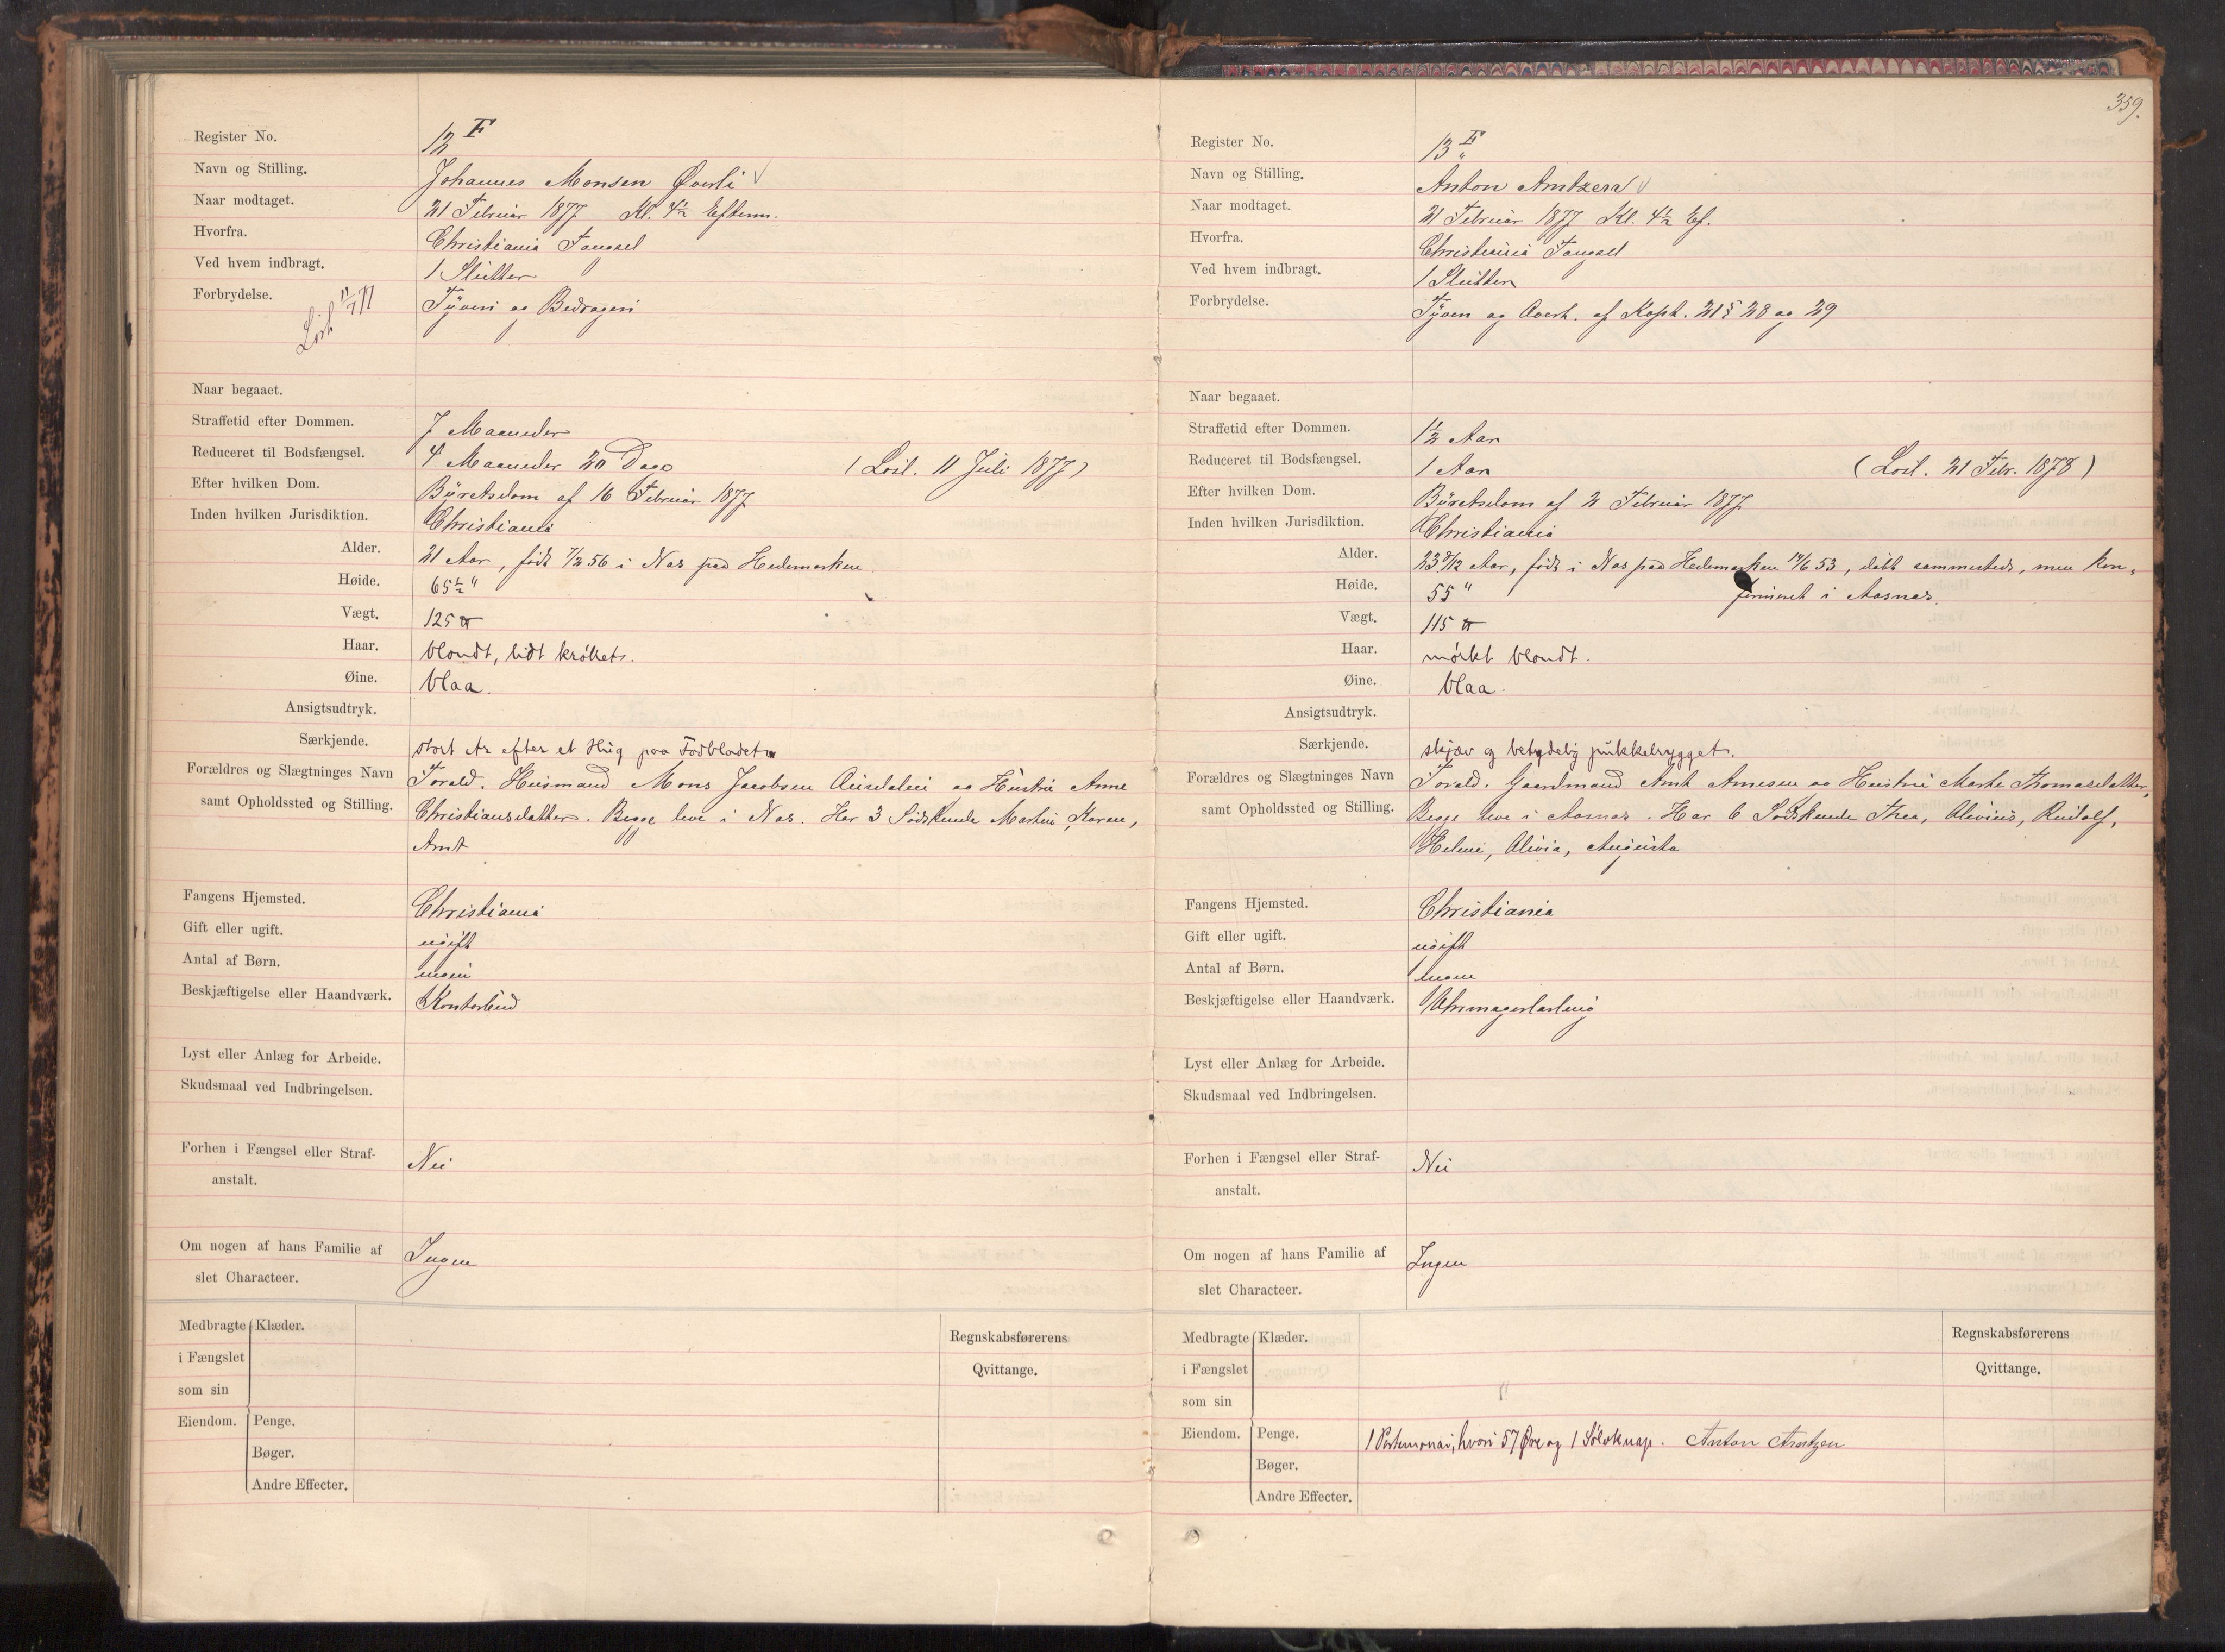 Register No. 12 F
Navn og Stilling. Johannes Monsen Øverli
Naar modtaget. 21 Februar 1877 Kl. 4½ Efterm.
Hvorfra. Christiania Fængsel
Ved hvem indbragt. 1 Slutter
Forbrydelse. Tyveri og Bedrageri
Løsl 11/7 77
Naar begaaet.
Straffetid efter Dommen. 7 Maaneder
Reduceret til Bodsfængsel. 4 Maaneder 20 Dage (Løsl. 11 Juli 1877)
Efter hvilken Dom. Byretsdom af 16 Februar 1877
Inden hvilken Jurisdiktion. Christiania
Alder. 21 Aar, født 7/2 56 i Næs paa Hedemarken
Høide. 65½ "
Vægt. 125 ℔
Haar. blondt, lidt krøllet.
Øine. blaa.
Ansigtsudtryk.
Særkjende. stort Ar efter et Hug paa Fodbladet
Forældres og Slægtninges Navn Foræld. Husmand Mons Jacobsen og Hustru Anne
samt Opholdssted og Stilling. Christiansdatter. Begge leve i Næs. Har 3 Södskende Martin, Karen,
Arnt
Fangens Hjemsted. Christiania
Gift eller ugift. ugift
Antal af Børn. ingen
Beskjæftigelse eller Haandværk. Kontorbud
Lyst eller Anlæg for Arbeide.
Skudsmaal ved Indbringelsen.
Forhen i Fængsel eller Straf- Nei
anstalt.
Om nogen af hans Familie af Ingen
slet Characteer.
Medbragte Klæder. Regnskabsførerens
i Fængslet Qvittange.
som sin
Eiendom. Penge.
Bøger.
Andre Effecter.
359.
Register No. 13 F "
Navn og Stilling. Anton Arntzen
Naar modtaget. 21 Februar 1877 Kl. 4½ Ef.
Hvorfra. Christiania Fængsel
Ved hvem indbragt. 1 Slutter
Forbrydelse. Tyveri og Overt. af Kapt. 21 § 28 og 29
Naar begaaet.
Straffetid efter Dommen. 1½ Aar
Reduceret til Bodsfængsel. 1 Aar (Løsl. 21 Febr. 1878)
Efter hvilken Dom. Byretsdom af 2 Februar 1877
Inden hvilken Jurisdiktion. Christiania
Alder. 23 8/12 Aar, født i Næs paa Hedemarken 14/6 53, døbt sammesteds, men kon-
Høide. 55 " firmeret i Aasnæs.
Vægt. 115 ℔
Haar. mörkt blondt.
Øine. blaa.
Ansigtsudtryk.
Særkjende. skjæv og betydelig pukkelrygget.
Forældres og Slægtninges Navn Foræld. Gaardmand Arnt Arnesen og Hustru Marte Thomasdatter,
samt Opholdssted og Stilling. Begge leve i Aasnæs. Har 6 Södskende Thea, Olivius, Rudolf,
Helene, Olivia, Augusta
Fangens Hjemsted. Christiania
Gift eller ugift. ugift
Antal af Børn. Ingen
Beskjæftigelse eller Haandværk. Uhrmagerlærling
Lyst eller Anlæg for Arbeide.
Skudsmaal ved Indbringelsen.
Forhen i Fængsel eller Straf- Nei
anstalt.
Om nogen af hans Familie af Ingen
slet Characteer.
Medbragte Klæder. Regnskabsførerens
i Fængslet Qvittange.
som sin "
Eiendom. Penge. 1 Portemonai, hvori 57 Øre og 1 Sölvknap. Anton Arntzen
Bøger.
Andre Effecter.